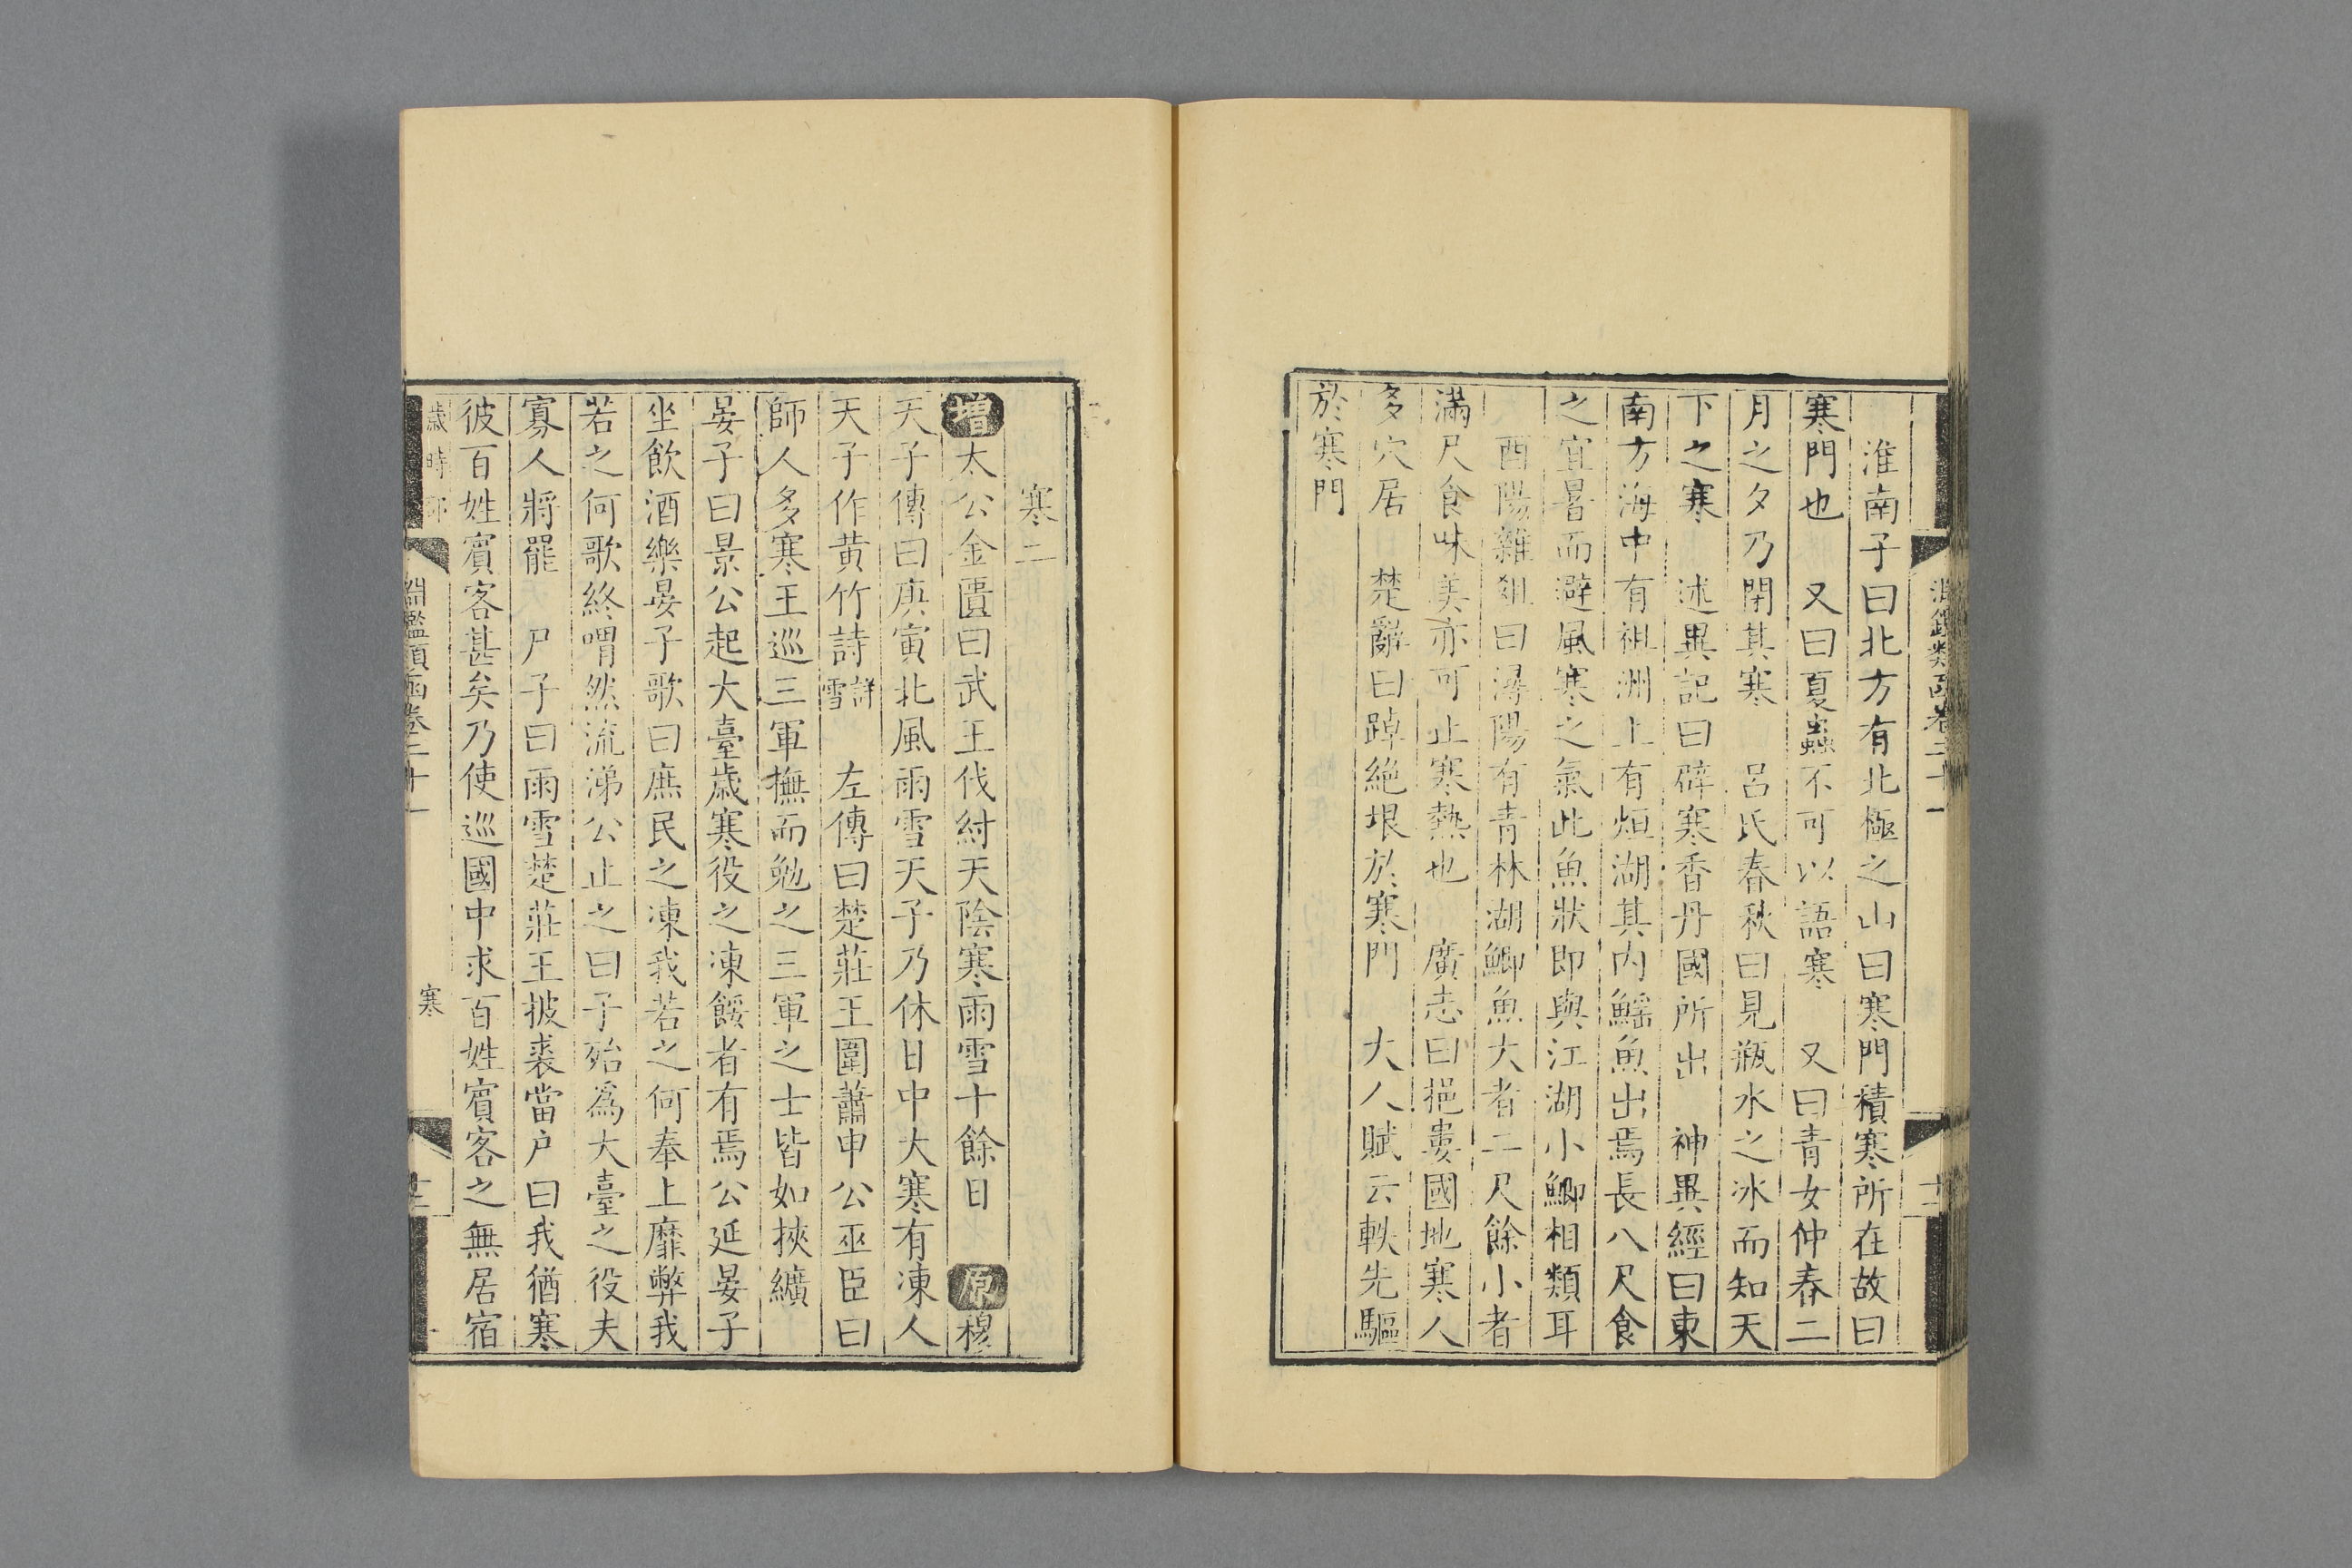 淵鑑類函卷二十一
淮南子曰北方有北極之山曰寒門積寒所在故曰
寒門也　又曰夏蟲不可以語寒　又曰青女仲春二
月之夕乃閉其寒　呂氏春秋曰見瓶水之冰而知天
下之寒　述異記曰辟寒香丹國所出　神異經曰東
南方海中有祖洲上有烜湖其內鰩魚出焉長八尺食
之宜暑而避風寒之氣此魚狀即與江湖小鯽相類耳
酉陽雜俎曰潯陽有青林湖鯽魚大者二尺餘小者
滿尺食味美亦可止寒熱也　廣志曰挹婁國地寒人
多穴居　楚辭曰踔絶垠於寒門　大人賦云軼先驅
於寒門
寒二
增太公金匱曰武王伐紂天陰寒雨雪十餘日　原穆
天子傳曰庚寅北風雨雪天子乃休日中大寒有凍人
天子作黄竹詩詳雪　左傳曰楚莊王圍蕭申公巫臣曰
師人多寒王巡三軍撫而勉之三軍之士皆如挾纊
晏子曰景公起大臺歲寒役之凍餒者有焉公延晏子
坐飲酒樂晏子歌曰庶民之凍我若之何奉上靡弊我
若之何歌終喟然流涕公止之曰子殆爲大臺之役夫
寡人將罷　尸子曰雨雪楚莊王披裘當户曰我猶寒
彼百姓賓客甚矣乃使巡國中求百姓賓客之無居宿
歲時部　淵鑑類函卷二十一　寒